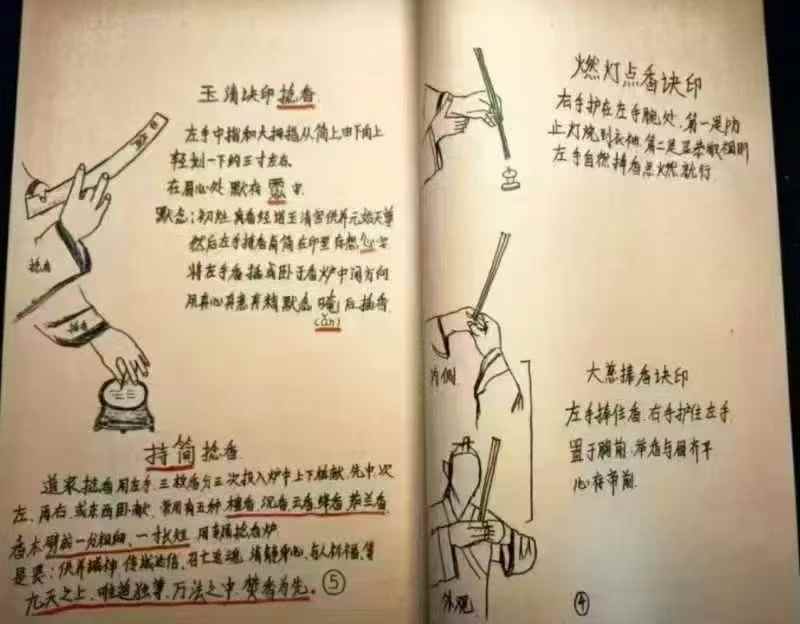 玉清诀印拈香
左手中指和大拇指从简上,由下向上
轻划一下约三寸左右
在眉心处 默存 字
默念:初炷真香经道玉清宫供养元始天尊
然后左手捧香离简在印堂存想心字
将左手香插或卧于香炉中间方向
用真心真意真精默念 唵 后插香
(ǎn)
拈香
插香
持简拈香
道家拈香用左手,三枚香分三次投入炉中上下植献,先中,次
左,再右,或东西卧献,常用有五种,檀香,沉香,云香,降香,芽兰香
香木劈成一分粗细,一寸长短,用专属拈香炉
是要:供养诸神,传诚达信,召亡返魂,清静身心,与人斜福,等
九天之上,唯道独尊,万法之中,焚香为先。⑤
燃灯点香诀印
右手护在左手腕处,第一是防
止灯烧到衣袖,第二是显恭敬祖师
左手自然捧香点燃就行
内侧
大慈捧香诀印
左手捧住香,右手护住左手
置于胸前,举香与眉齐平
心存帝前
外观
④